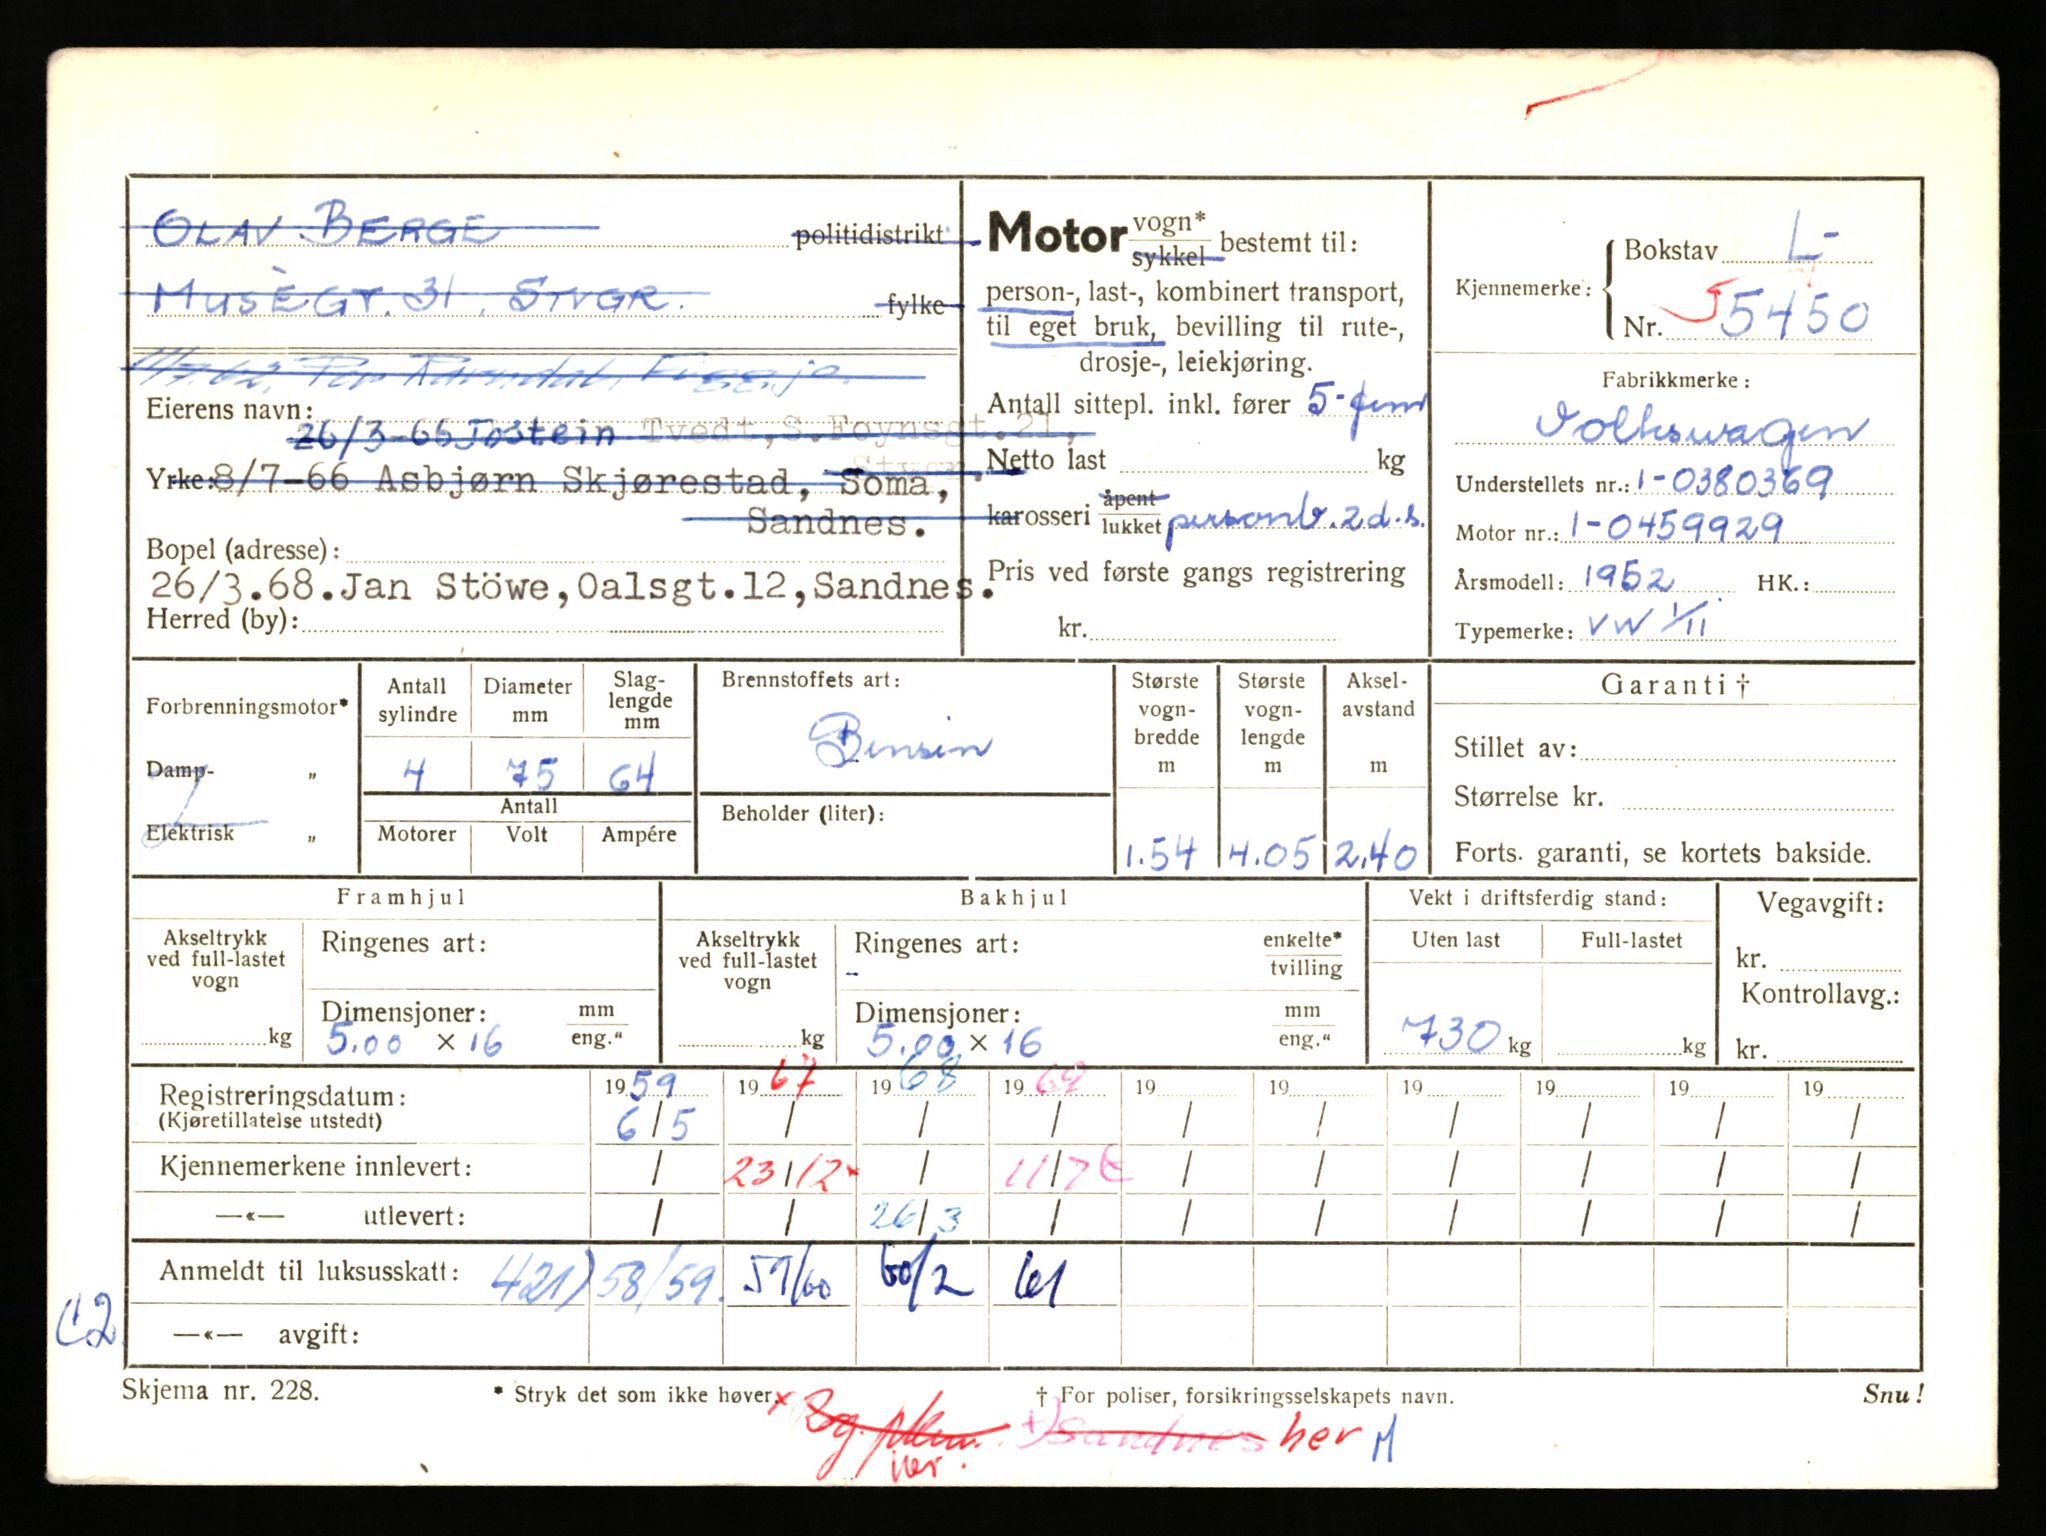 OLAV BERGE politidistrikt
MUSÈGT. 31, STVGR. fylke
Eierens navn:
26/3-66 Jostein Tvedt, S.Foynsgt.21,
Stvgr.
Yrke: 8/7-66 Asbjørn Skjørestad, Soma,
Sandnes.
Bopel (adresse):
26/3.68.Jan Stöwe,Oalsgt.12,Sandnes.
Herred (by):
Motor vogn* sykkel bestemt til:
person-, last-, kombinert transport,
til eget bruk, bevilling til rute-,
drosje-, leiekjøring.
Antall sittepl. inkl. fører 5-fem
Netto last kg
karosseri åpent lukket personb. 2 d.s.
Pris ved første gangs registrering
kr.
Kjennemerke:
Bokstav L-
Nr. 55450
Fabrikkmerke:
Volkswagen
Understellets nr.: 1-0380369
Motor nr.: 1-0459929
Årsmodell: 1952 HK.:
Typemerke: VW 1/11
Forbrenningsmotor*
Damp- „
Elektrisk „
Antall sylindre
Diameter mm
Slag-lengde mm
4 75 64
Antall
Motorer Volt Ampére
Brennstoffets art:
Bensin
Beholder (liter):
Største vogn-bredde m
Største vogn-lengde m
Aksel-avstand m
1.54 4.05 2.40
Garanti †
Stillet av:
Størrelse kr.
Forts. garanti, se kortets bakside.
Framhjul
Akseltrykk ved full-lastet vogn
kg
Ringenes art:
Dimensjoner: mm eng."
5.00 × 16
Bakhjul
Akseltrykk ved full-lastet vogn
kg
Ringenes art: enkelte* tvilling
Dimensjoner: mm eng."
5.00 × 16
Vekt i driftsferdig stand:
Uten last Full-lastet
730 kg kg
Vegavgift:
kr.
Kontrollavg.:
kr.
Registreringsdatum: 1959 1967 1968 1969 19 19 19 19 19 19
(Kjøretillatelse utstedt) 6/5 / / / / / / / / /
Kjennemerkene innlevert: / 23/12 / 11/7 / / / / / /
—«— utlevert: / / 26/3 / / / / / / /
Anmeldt til luksusskatt: 421) 58/59. 59/60 60/2 61
C2 —«— avgift:
Skjema nr. 228.
* Stryk det som ikke høver.
† For poliser, forsikringsselskapets navn.
Snu!
her.
Sandnes her M